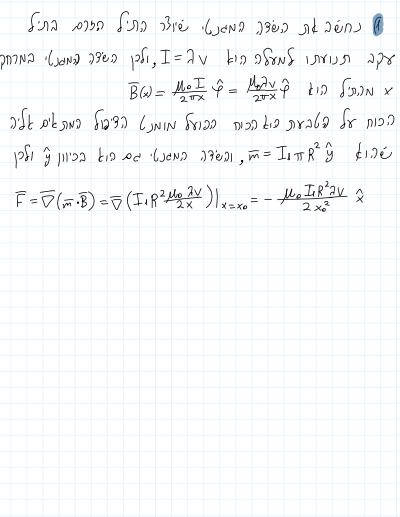 א נחשב את השדה המגנטי שיוצר התיל הזרם בתיל
עקב תנועתו למעלה הוא I = λv, ולכן השדה המגנטי במרחק
x מהתיל הוא B̄(x) = μ₀I/2πx φ̂ = μ₀λv/2πx φ̂
הכוח על הטבעת הוא הכוח הפועל מומנט הדיפול המתאים אליה
שהוא m̄ = I₁πR² ŷ, והשדה המגנטי גם הוא בכיוון ŷ ולכן
F̄ = ∇̄(m̄·B̄) = ∇̄(I₁R² μ₀λv/2x)|ₓ₌ₓ₀ = - μ₀I₁R²λv/2x₀² x̂